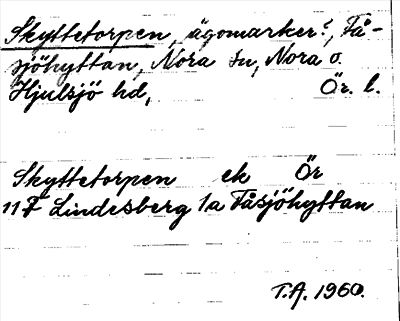 Skyttetorpen, ägomarker?, Få-
sjöhyttan, Nora sn, Nora o.
Hjulsjö hd, Ör. l.
Skyttetorpen ek Ör
11F Lindesberg 1a Fåsjöhyttan
T.A. 1960.